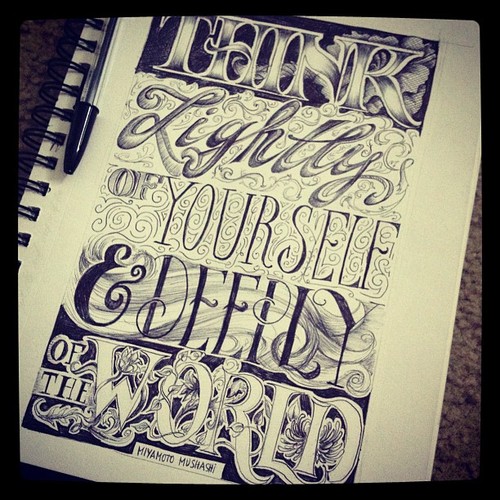 THINK
Lightly
OF YOURSELF
& DEEPLY
OF THE WORLD
MIYAMOTO MUSHASHI